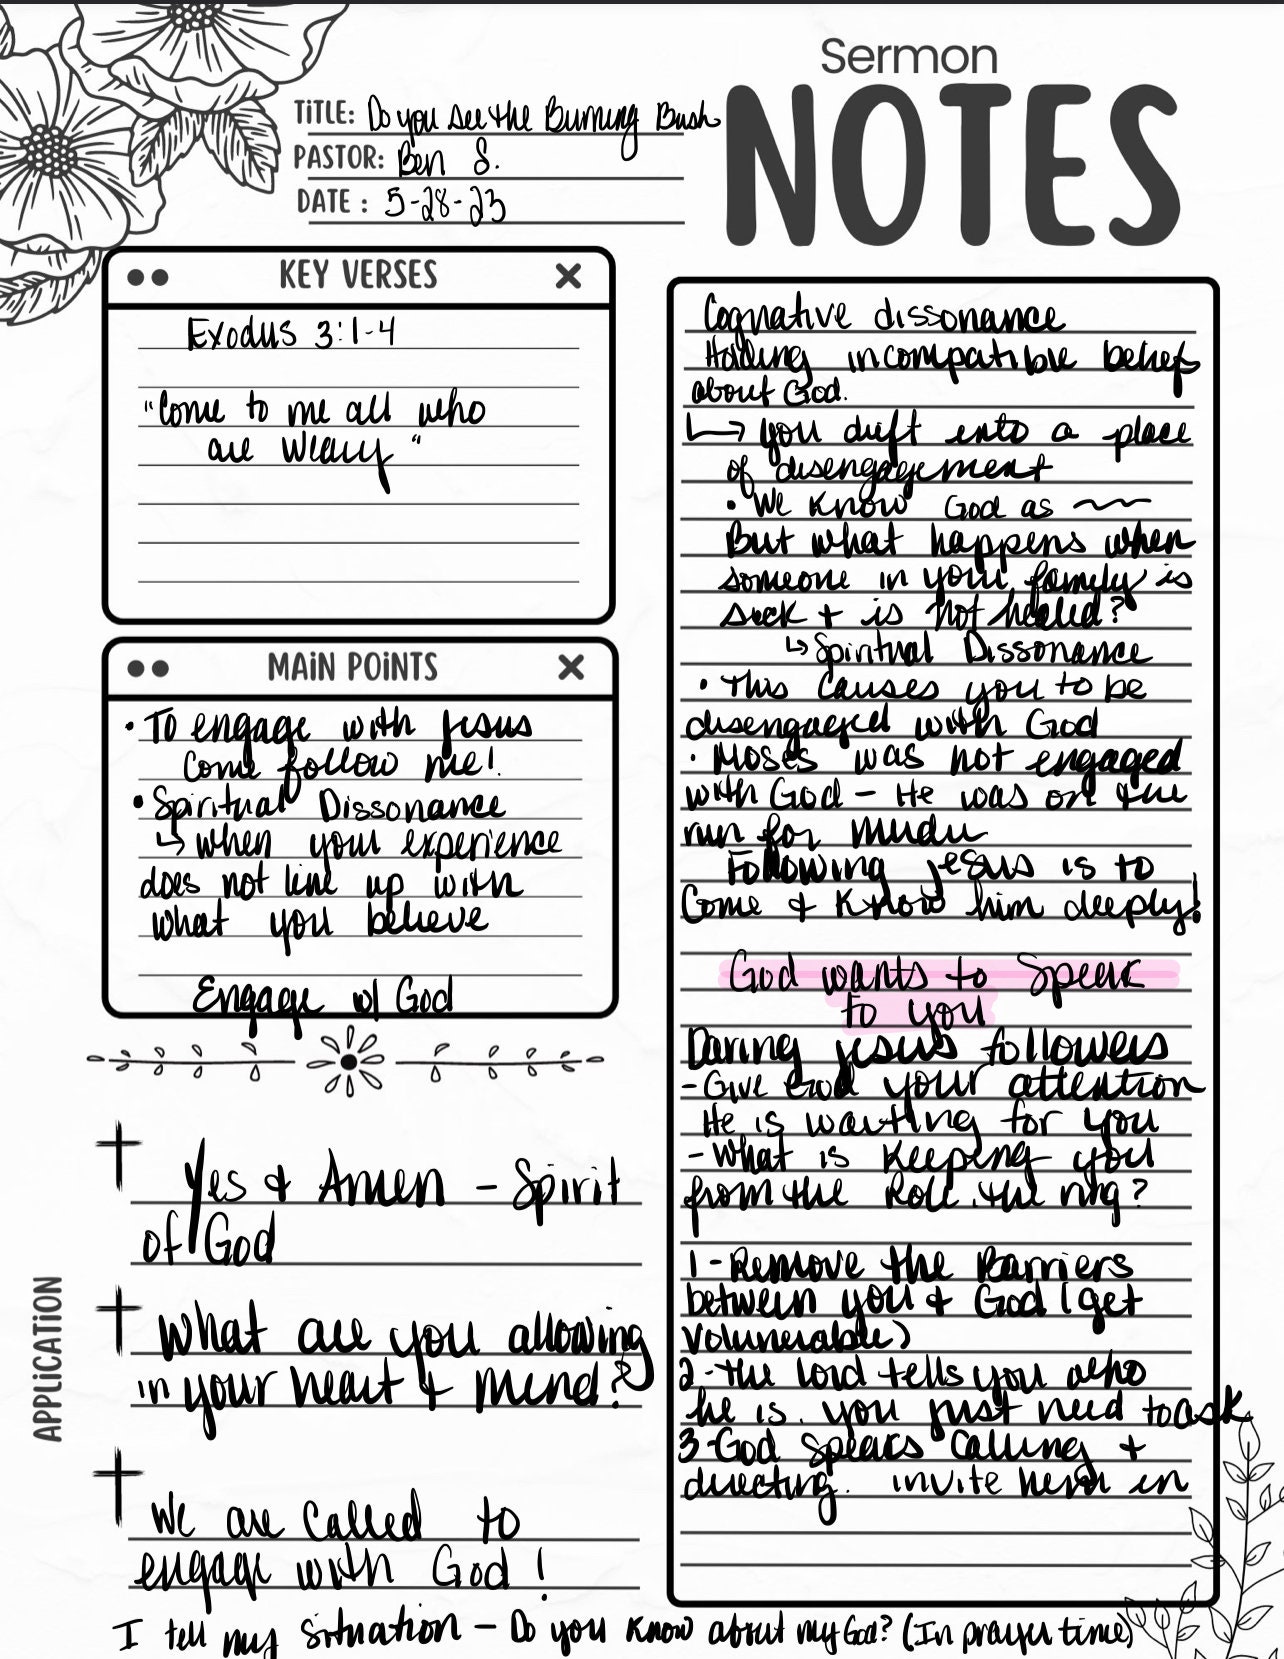 Sermon
NOTES
TITLE: Do you see the Burning Bush
PASTOR: Ben S.
DATE : 5-28-23
KEY VERSES
Exodus 3:1-4
"Come to me all who
are weary"
MAIN POINTS
• To engage with Jesus
Come follow me!
• Spiritual Dissonance
↳ when your experience
does not line up with
what you believe
Engage w/ God
APPLICATION
Yes & Amen - Spirit
of God
What are you allowing
in your heart & mind?
We are Called to
engage with God!
I tell my situation - Do you know about my God? (In prayer time)
Cognative dissonance
Holding incompatible beliefs
about God.
↳ you drift into a place
of disengagement
• We know God as ~~
But what happens when
someone in your family is
sick + is not healed?
↳ Spiritual Dissonance
• This causes you to be
disengaged with God
• Moses was not engaged
with God - He was on the
run for murder
Following Jesus is to
Come & Know him deeply!
God wants to Speak
to you
Daring Jesus followers
- Give God your attention
He is waiting for you
- What is keeping you
from the Role. the ring?
1-Remove the Barriers
between you & God (get
volunerable)
2-the lord tells you who
he is. you just need to ask
3-God Speaks Calling +
directing. invite him in